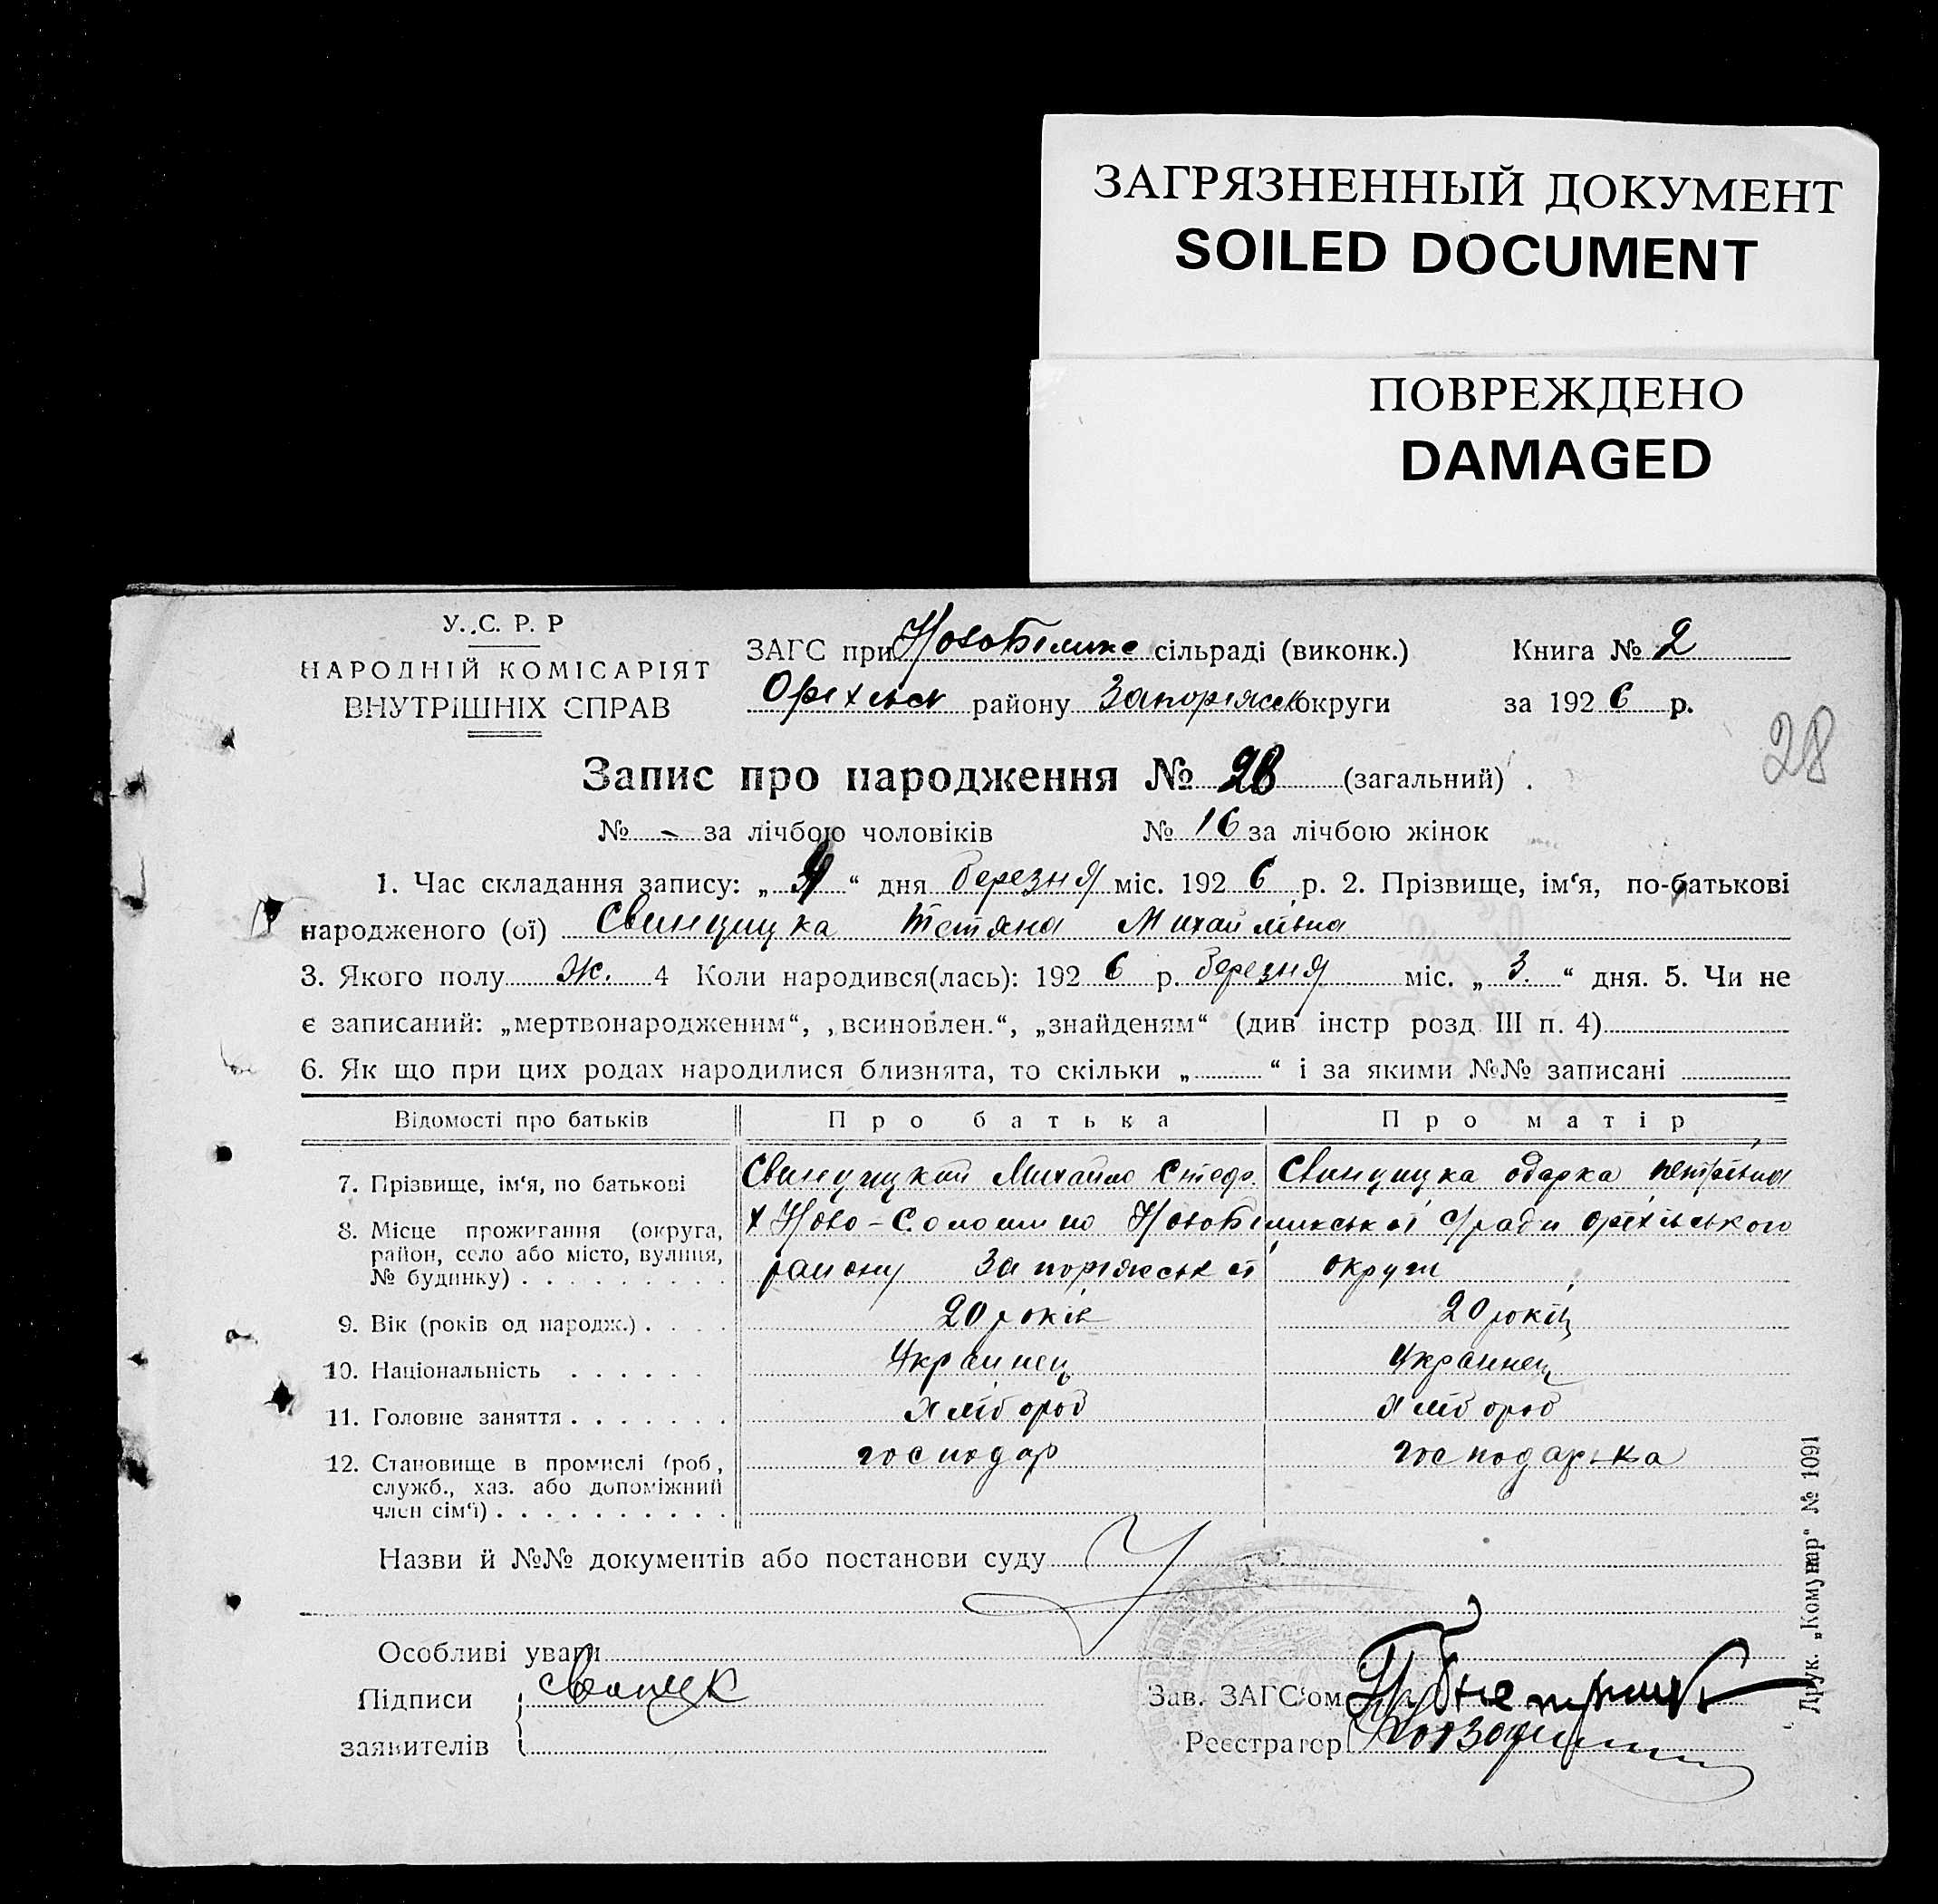 ЗАГРЯЗНЕННЫЙ ДОКУМЕНТ
SOILED DOCUMENT
ПОВРЕЖДЕНО
DAMAGED
У.С.Р.Р
НАРОДНІЙ КОМІСАРІЯТ
ВНУТРІШНІХ СПРАВ
ЗАГС при сільраді (виконк.) Книга № 2
Оріхівск району Запоріжськ округи за 1926 р.
28
Запис про народження № 28 (загальний)
№ - за лічбою чоловіків № 16 за лічбою жінок
1. Час складання запису: „ “ дня березня міс. 1926 р. 2. Прізвище, ім‘я, по-батькові
народженого (ої) Свинцицка Тетяна Михайлівна
3. Якого полу Ж. 4 Коли народився(лась): 1926 р. березня міс. „3.“ дня. 5. Чи не
є записаний: „мертвонародженим“, „всиновлен.“, „знайденям“ (див інстр розд III п. 4)
6. Як що при цих родах народилися близнята, то скільки „ “ і за якими №№ записані
Відомості про батьків Про батька Про матір
7. Прізвище, ім‘я, по батькові Свинцицкий Михайло Стеф. Свинцицка Одарка Петрівна
8. Місце прожигання (округа, х Ново-Солошино сˊради Оріхівського
район, село або місто, вулиця,
№ будинку) району Запоріжської округи
9. Вік (років од народж.) 20 років 20 років
10. Національність Украинец Украинец
11. Головне заняття хлібороб хлібороб
12. Становище в промислі (роб, господар господарька
служб., хаз. або допоміжний
член сім‘ї)
Назви й №№ документів або постанови суду
Особливі уваги
Підписи
заявителів
Зав. ЗАГС‘ом
Реєстратор
Друк. „Комунар“ № 1091